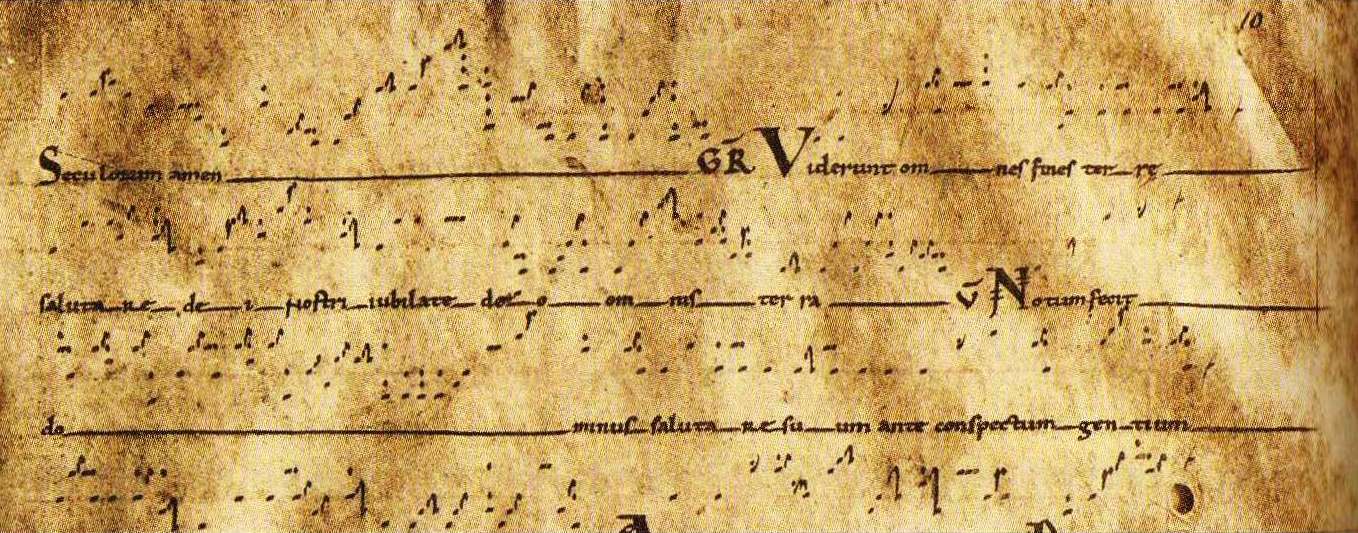 10
Seculorum amen GR Viderunt om nes fines ter rę
saluta re de i nostri iubilate deo o om nis ter ra V Notum fecit
do minus saluta re su um ante conspectum gen tium